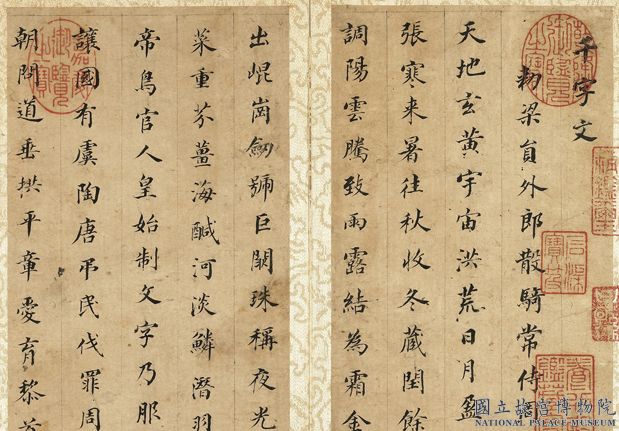 千字文
勑梁員外郎散騎常侍
天地玄黃宇宙洪荒日月盈
張寒来暑往秋收冬蔵閏餘
調陽雲騰致雨露結為霜金
出崐崗劒號巨闕珠稱夜光
菜重芥薑海鹹河淡鱗潛羽
帝鳥官人皇始制文字乃服
讓國有虞陶唐弔民伐罪周
朝問道垂拱平章愛育黎
石渠寶笈
國立故宮博物院
NATIONAL PALACE MUSEUM